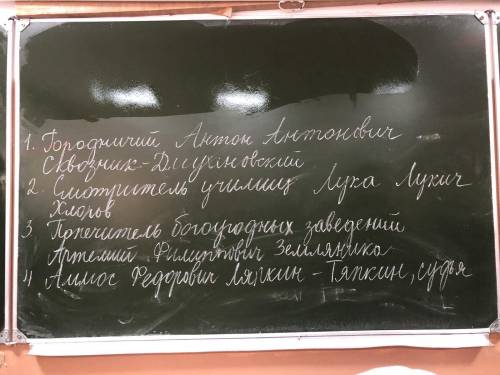 1. Городничий Антон Антонович
Сквозник-Дмухановский
2. Смотритель училищ Лука Лукич
Хлопов
3 Попечитель богоугодных заведений
Артемий Филиппович Земляника
4 Аммос Федорович Ляпкин-Тяпкин, судья